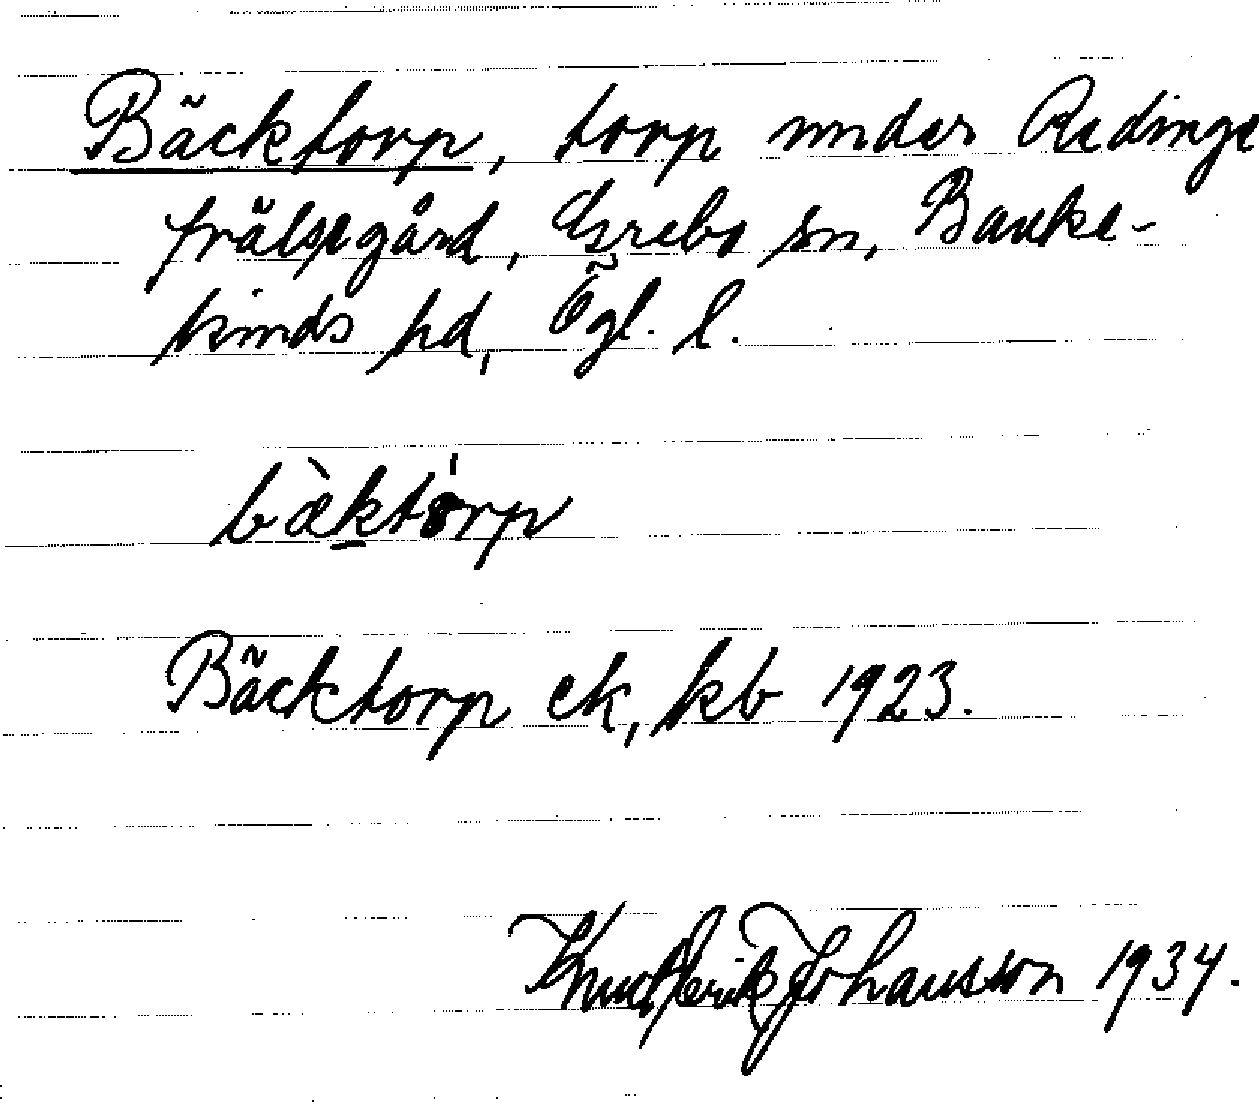 Bäcktorp, torp under Redinge
frälsegård, Grebo sn, Banke-
kinds hd, Ögl. l.
bæ̀ktòrp
Bäcktorp ek, kb 1923.
Knut Erik Johansson 1934.